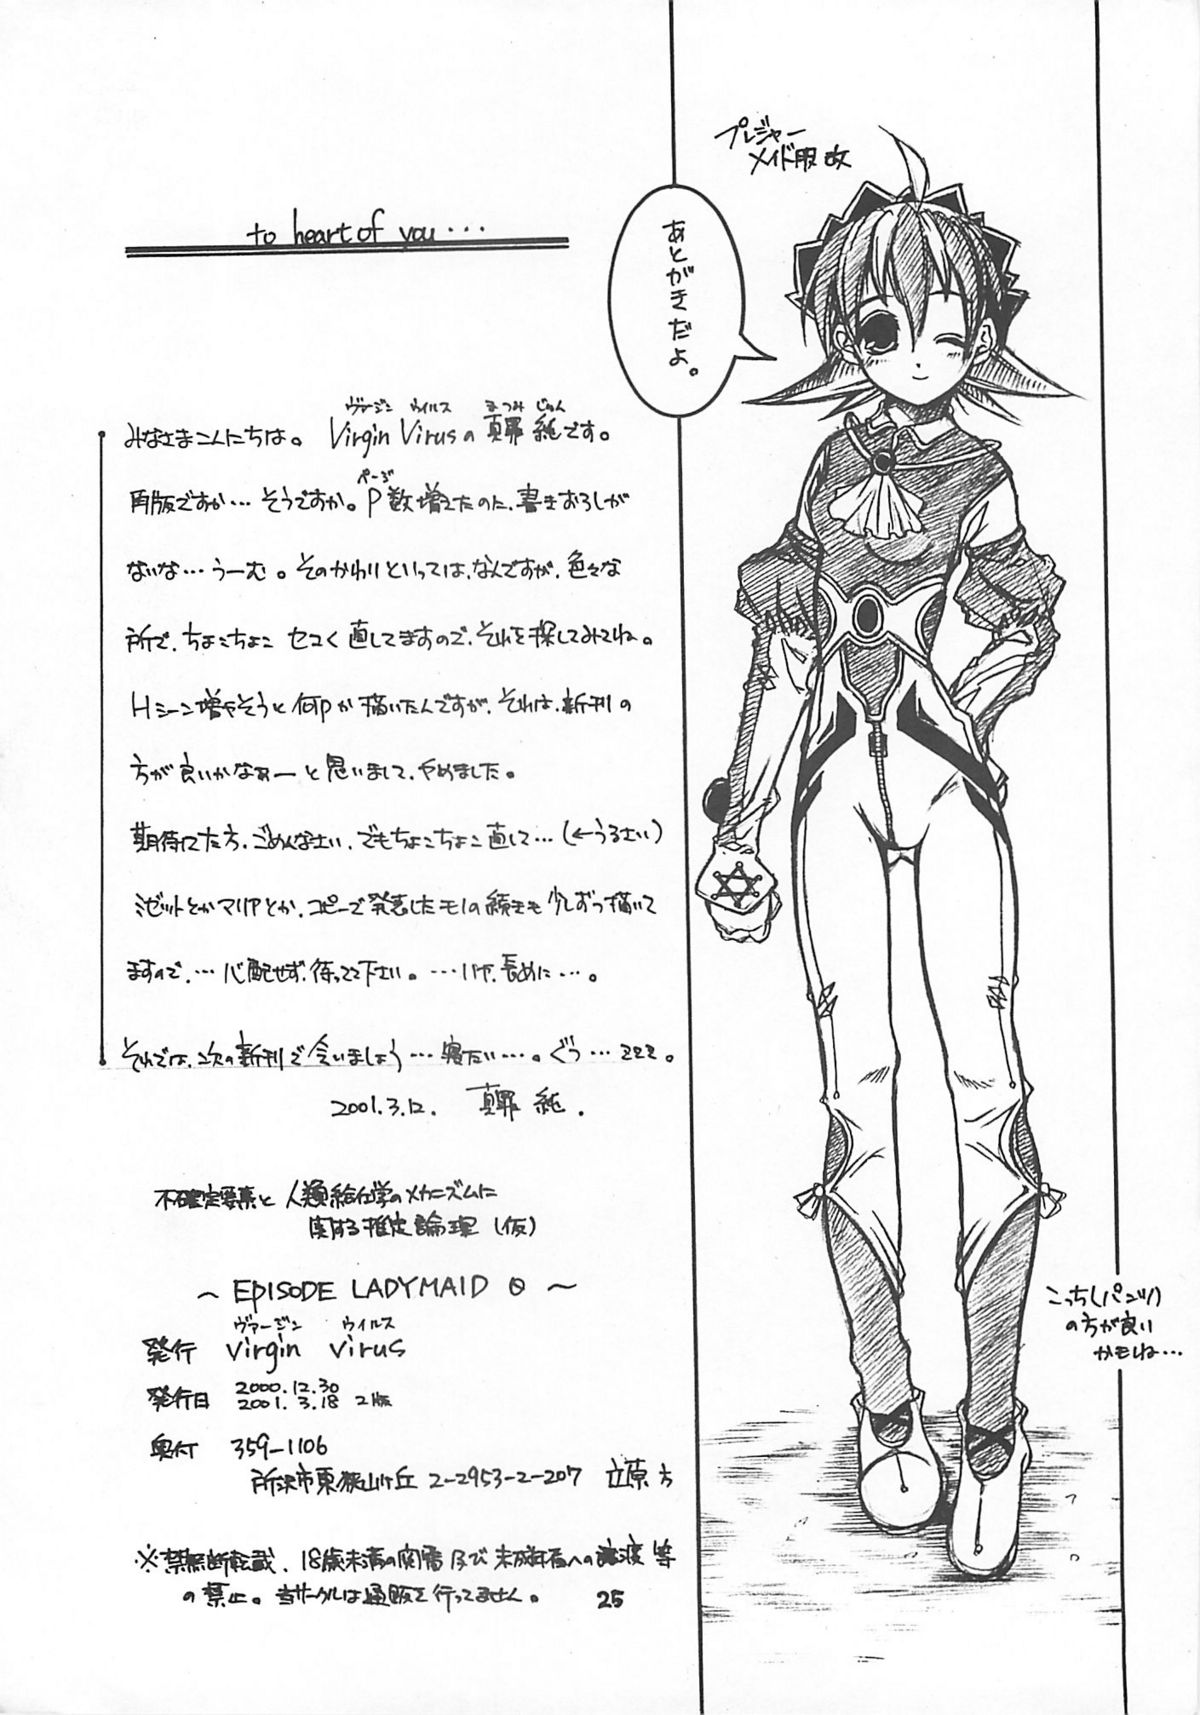 to heart of you...
プレジャー
メイド服改
あとがきだよ。
ヴァージン ウイルス まつみ じゅん
みなさまこんにちは。 Virgin Virusの真罪 純です。
ページ
再版ですか…そうですか。P数増えたのに、書きおろしが
ないな…うーむ。そのかわりといっては、なんですが、色々な
所で、ちょこちょこ セコく直してますので、それを探してみてね。
Hシーン増やそうと何Pか描いたんですが、それは、新刊の
方が良いかなぁーと思いまして、やめました。
期待してた方、ごめんなさい、でもちょこちょこ直して…(←うるさい)
ミゼットとかマリアとか、コピーで発表したモノの続きも少しずつ描いて
ますので、…心配せず、待ってて下さい。…いや、長めに…。
それでは、次の新刊で会いましょう…寝たい…。ぐぅ…zzz。
2001.3.12. 真罪 純.
不確定要素と人類給仕学のメカニズムに
関する推定論理(仮)
～ EPISODE LADYMAID 0 ～
ヴァージン ウイルス
発行 virgin virus
発行日 2000.12.30
2001. 3.18 2版
奥付 359-1106
所沢市東狭山ヶ丘 2-2953-2-207 立原方
※禁無断転載、18歳未満の閲覧及び未成年者への譲渡等
の禁止。当サークルは通販を行ってません。
25
こっち(パンツ)
の方が良い
かもね…